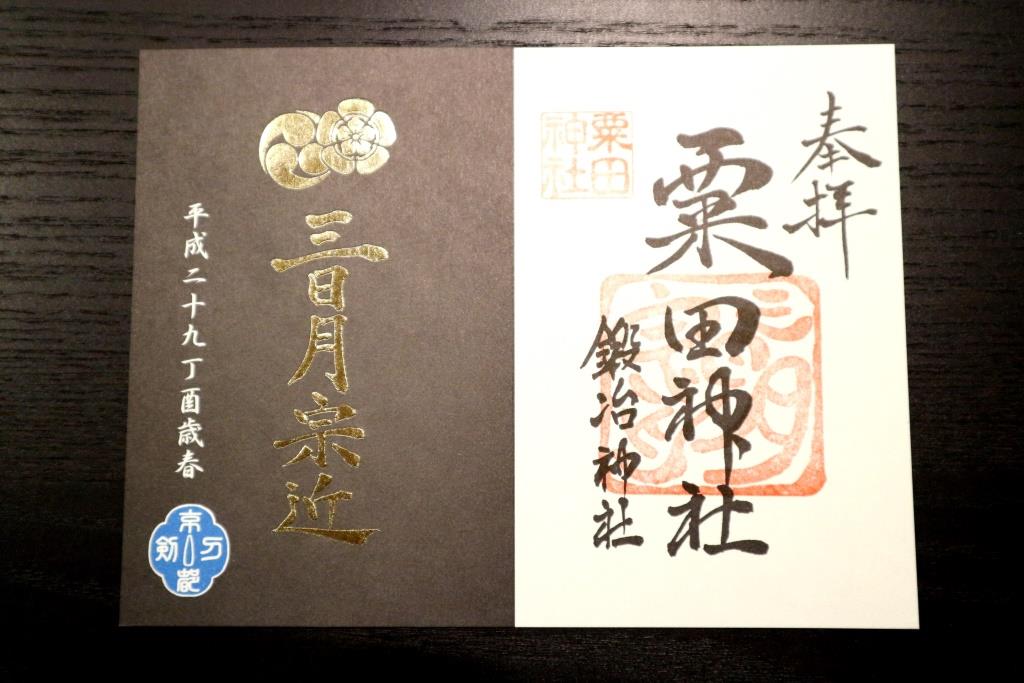 奉拝
粟田神社
鍛冶神社
粟田
神社
三日月宗近
平成二十九丁酉歳春
京都
刀剣